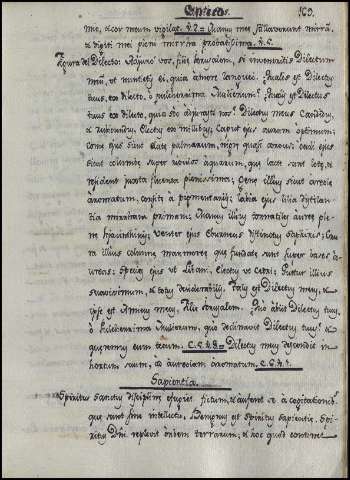 Cantico. 169.
me, et cor meum vigilat. 5.2 = Manus meæ stillaverunt mirrã,
et digiti mei pleni mirrha probatissima. 4.5.
Figura del Dilecto: Adjuro vos, filiæ Jerusalem, si inveneritis Dilectum
meũ, ut nuntietis ei, quia amore langueo. Qualis est Dilectus
tuus, ex dilecto, o pulcherrima Mulierum? Qualis est Dilectus
tuus ex dilecto, quia sic adjurasti nos? Dilectus meus Candidus,
et rubicundus, electus ex millibus, Caput ejus aurum optimum;
Comæ ejus sicut elatæ palmarum, nigræ quasi corvus; oculi ejus
sicut columbæ super rivulos aquarum, quæ lacte sunt lotæ, et
resident juxta fluenta plenissima; Genæ illius sicut areolæ
aromatum, consitæ a pigmentariis; labia ejus lilia distilan-
tia mirrham primam; Manus illius tornatiles aureæ plenæ
hyacinthis; Venter ejus eburneus distinctus saphiris; Cru-
ra illius columnæ marmoreæ quæ fundatæ sunt super bases au-
reas; Species ejus ut Libani, electus ut cedri; Guttur illius
suavissimum, et totus desiderabilis. Talis est Dilectus meus, et
ipse est Amicus meus, filiæ Jerusalem. Quo abiit Dilectus tuus,
o Pulcherrima Mulierum, quo declinavit Dilectus tuus? et
quæremus eum tecum. C.5.8 = Dilectus meus descendit in
hortum suum, ad areolam aromatum. C.6.1.
Sapientia.
Spiritus sanctus disciplinæ efugiet fictum, et auferet se a cogitationib⁹
quæ sunt sine intellectu. Benignus est spiritus sapientiæ. Spi-
ritus Dñi replevit orbem terrarum; et hoc quod continet